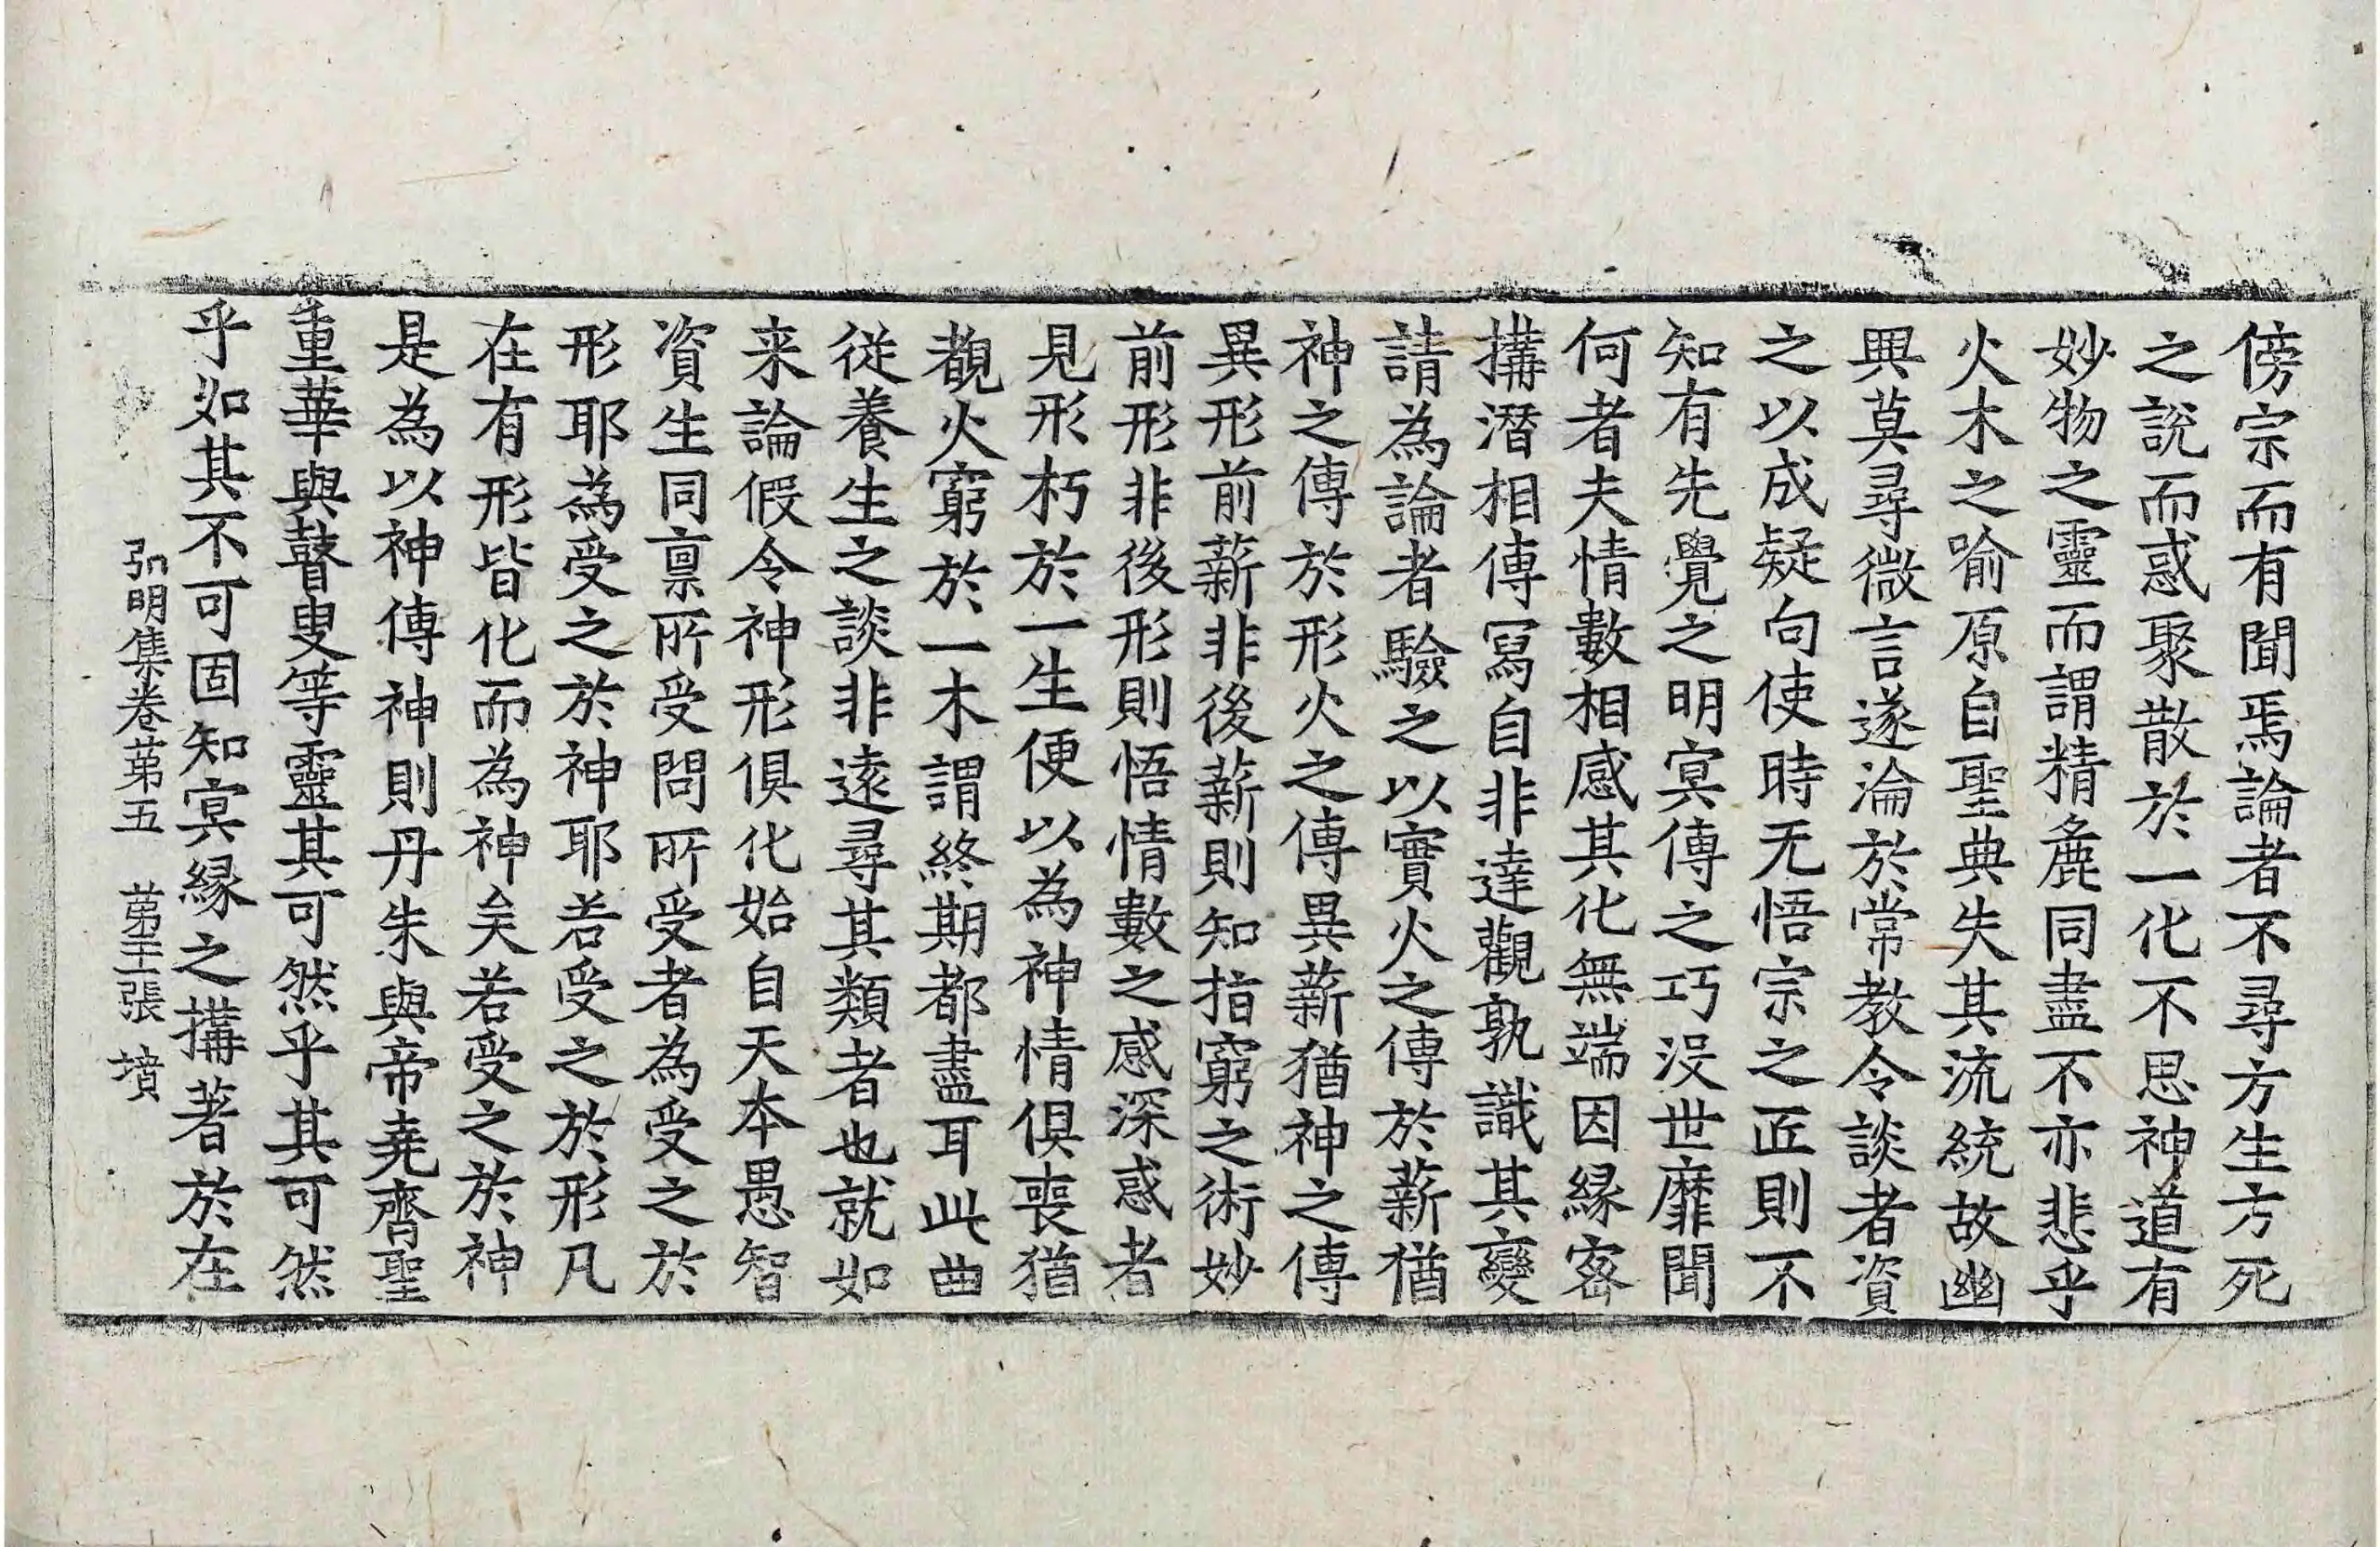 傍宗而有聞焉論者不尋方生方死
之說而惑聚散於一化不思神道有
妙物之靈而謂精麁同盡不亦悲乎
火木之喻原自聖典失其流統故幽
興莫尋微言遂淪於常教令談者資
之以成疑向使時无悟宗之匠則不
知有先覺之明冥傳之巧没世靡聞
何者夫情數相感其化無端因緣密
搆潛相傳寫自非達觀孰識其變
請為論者驗之以實火之傳於薪猶
神之傳於形火之傳異薪猶神之傳
異形前薪非後薪則知指窮之術妙
前形非後形則悟情數之感深惑者
見形朽於一生便以為神情俱喪猶
覩火窮於一木謂終期都盡耳此曲
從養生之談非遠尋其類者也就如
来論假令神形俱化始自天本愚智
資生同禀所受問所受者為受之於
形耶為受之於神耶若受之於形凡
在有形皆化而為神矣若受之於神
是為以神傳神則丹朱與帝堯齊聖
重華與瞽叟等靈其可然乎其可然
乎如其不可固知冥緣之搆著於在
弘明集卷第五 第十二張 墳